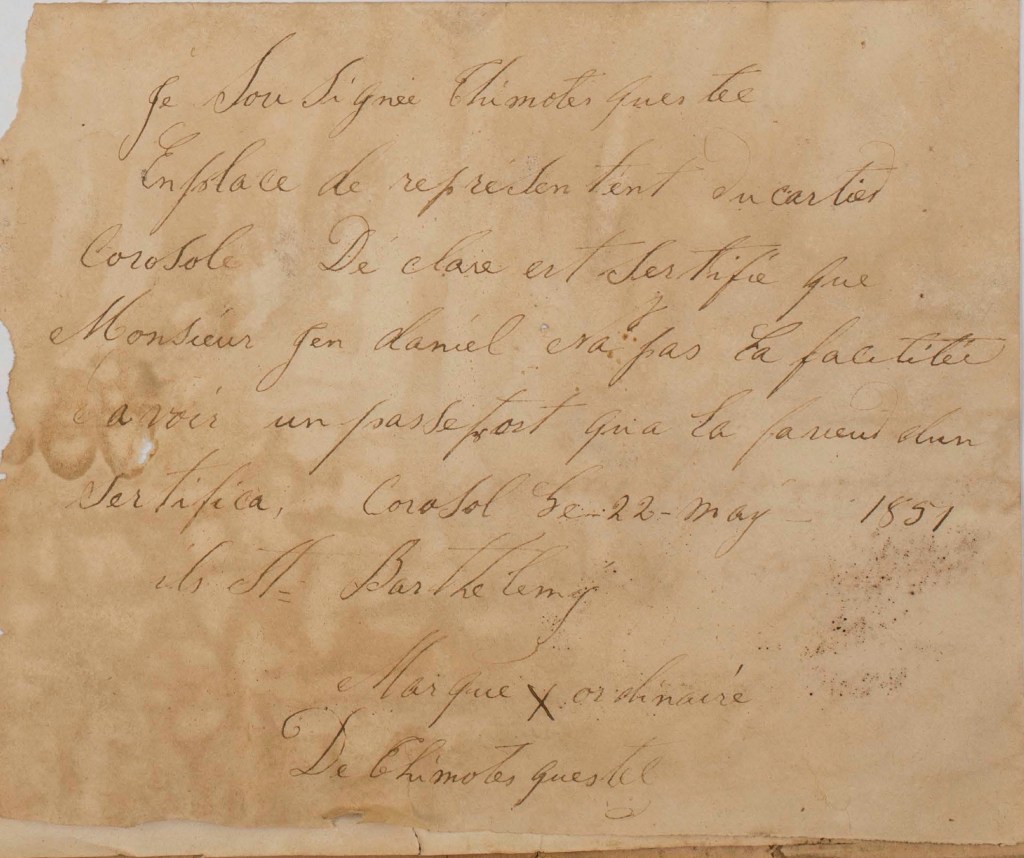 Je Sou Signée Thimotes questee
Enplace de represenTent Du cartier
Corosole De clare est SerTifié que
Monsieur Jen daniel ora pas La facilitée
d'avoir un passeport qu'a La faveur dun
SerTifica, Corosol Le 22 - may - 1851
ils St= BarThelemy
Marque X ordinaire
De Thimotes questel